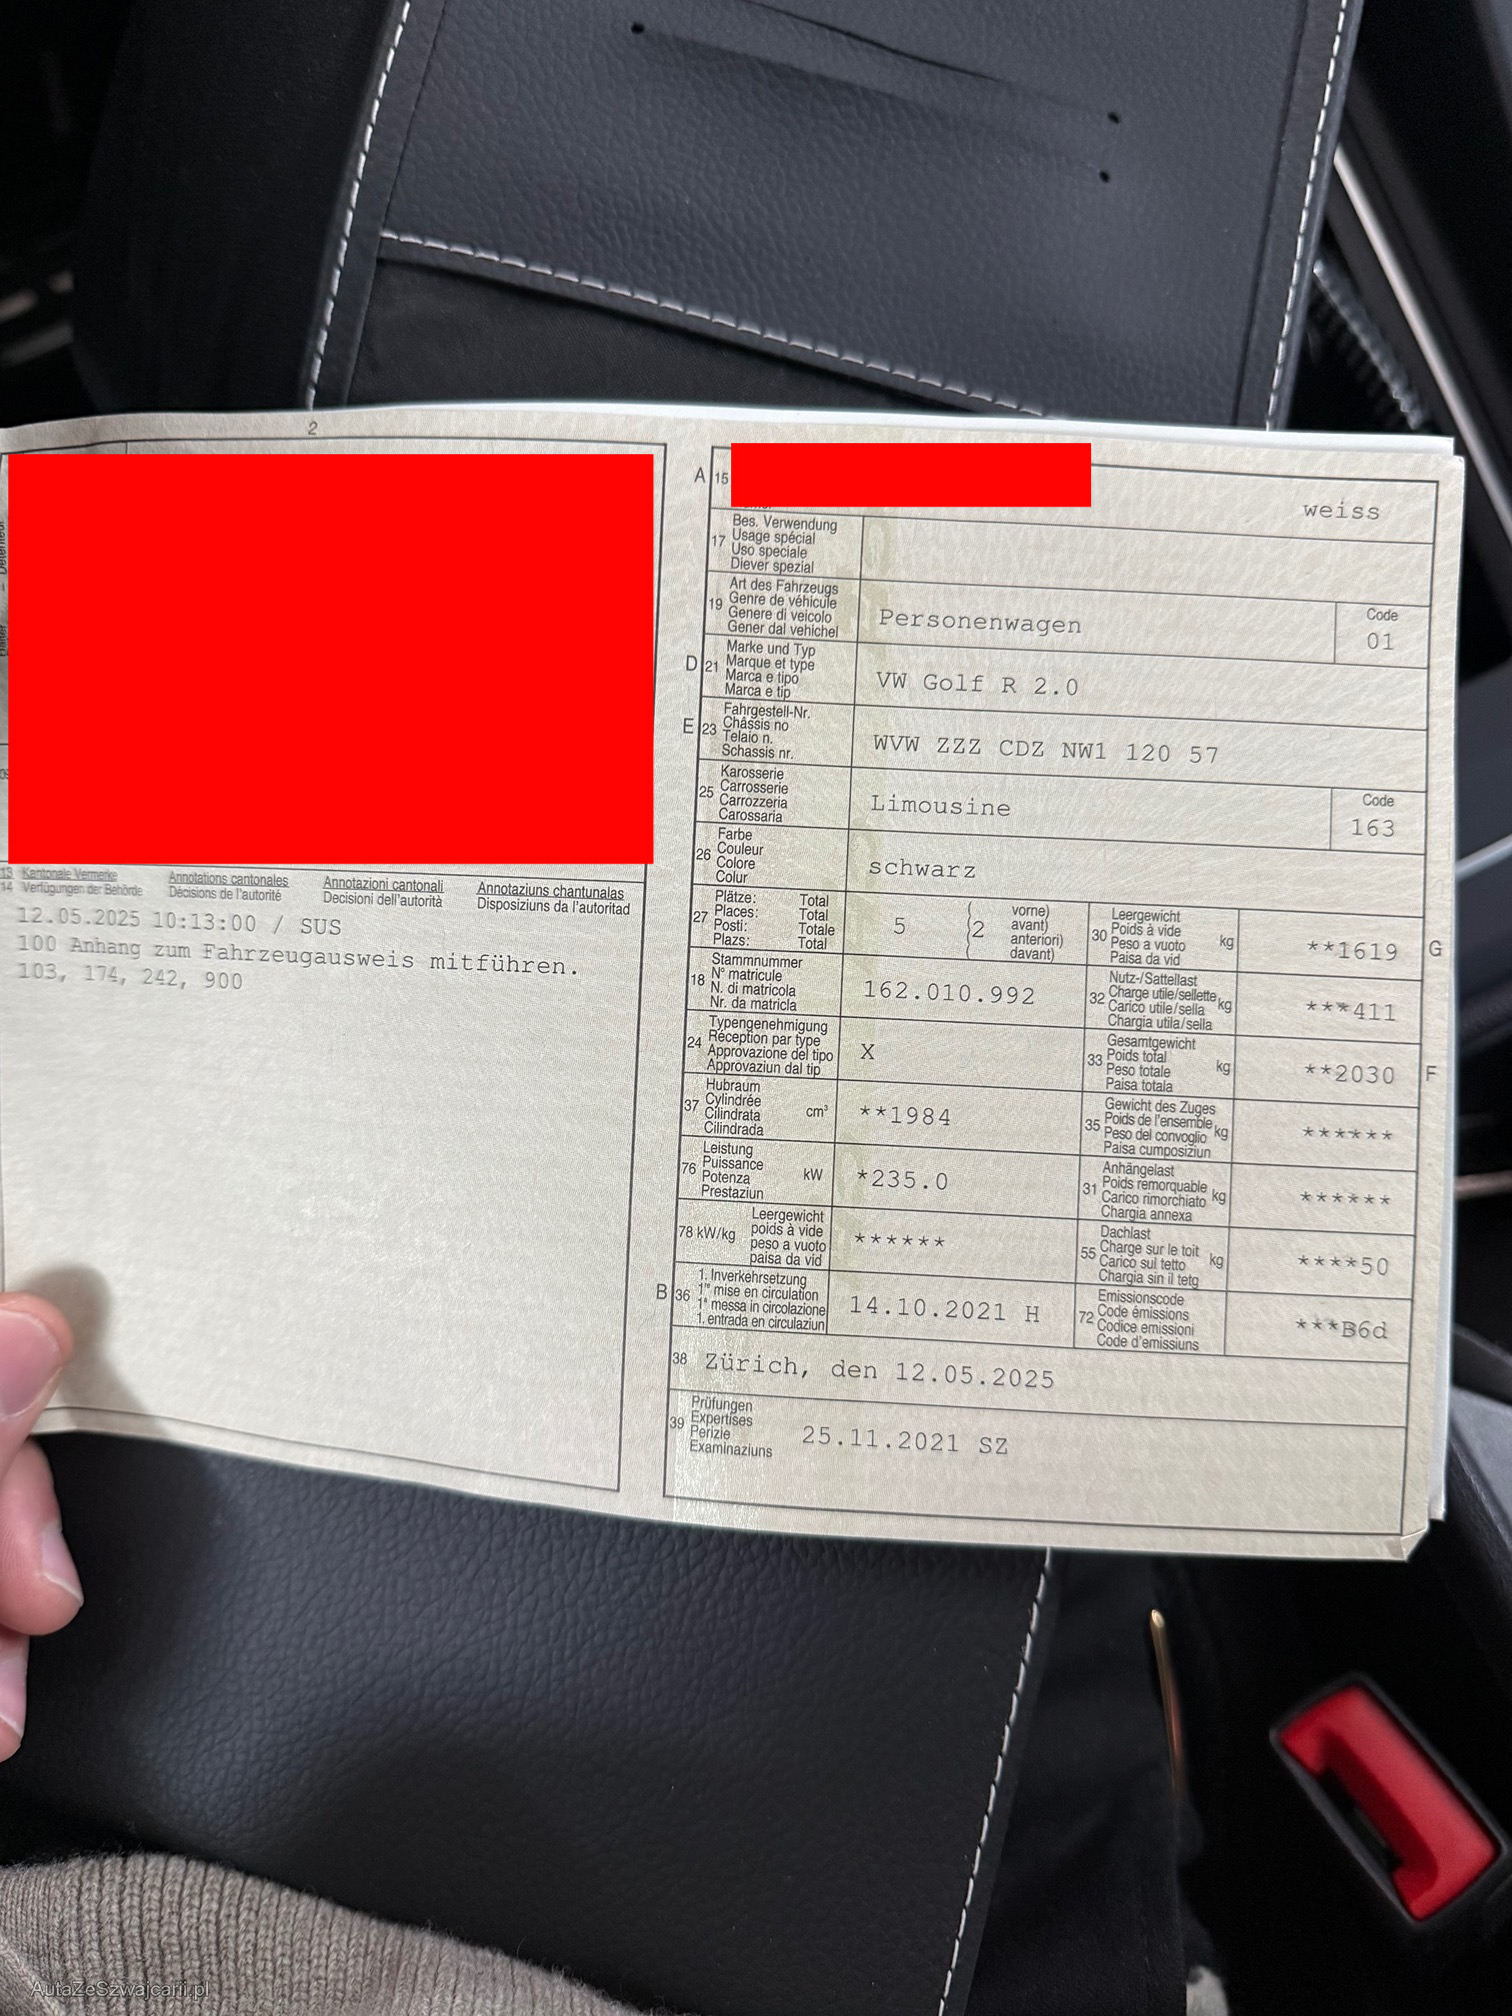 2
13 Kantonale Vermerke Annotations cantonales Annotazioni cantonali Annotaziuns chantunalas
14 Verfügungen der Behörde Décisions de l'autorité Decisioni dell'autorità Disposiziuns da l'autoritad
12.05.2025 10:13:00 / SUS
100 Anhang zum Fahrzeugausweis mitführen.
103, 174, 242, 900
A 15 weiss
17 Bes. Verwendung
Usage spécial
Uso speciale
Diever spezial
19 Art des Fahrzeugs
Genre de véhicule
Genere di veicolo
Gener dal vehichel
Personenwagen
Code
01
D 21 Marke und Typ
Marque et type
Marca e tipo
Marca e tip
VW Golf R 2.0
E 23 Fahrgestell-Nr.
Châssis no
Telaio n.
Schassis nr.
WVW ZZZ CDZ NW1 120 57
25 Karosserie
Carrosserie
Carrozzeria
Carossaria
Limousine
Code
163
26 Farbe
Couleur
Colore
Colur
schwarz
27 Plätze: Total
Places: Total
Posti: Totale
Plazs: Total
5 (2 vorne)
avant)
anteriori)
davant)
30 Leergewicht
Poids à vide
Peso a vuoto
Paisa da vid
kg
**1619 G
18 Stammnummer
N° matricule
N. di matricola
Nr. da matricla
162.010.992
32 Nutz-/Sattellast
Charge utile/sellette
Carico utile/sella
Chargia utila/sella
kg
***411
24 Typengenehmigung
Réception par type
Approvazione del tipo
Approvaziun dal tip
X
33 Gesamtgewicht
Poids total
Peso totale
Paisa totala
kg
**2030 F
37 Hubraum
Cylindrée
Cilindrata
Cilindrada
cm³
**1984
35 Gewicht des Zuges
Poids de l'ensemble
Peso del convoglio
Paisa cumposiziun
kg
******
76 Leistung
Puissance
Potenza
Prestaziun
kW
*235.0
31 Anhängelast
Poids remorquable
Carico rimorchiato
Chargia annexa
kg
******
78 kW/kg Leergewicht
poids à vide
peso a vuoto
paisa da vid
******
55 Dachlast
Charge sur le toit
Carico sul tetto
Chargia sin il tetg
kg
****50
B 36 1. Inverkehrsetzung
1re mise en circulation
1a messa in circolazione
1. entrada en circulaziun
14.10.2021 H
72 Emissionscode
Code émissions
Codice emissioni
Code d'emissiuns
***B6d
38 Zürich, den 12.05.2025
39 Prüfungen
Expertises
Perizie
Examinaziuns
25.11.2021 SZ
AutaZeSzwajcarii.pl